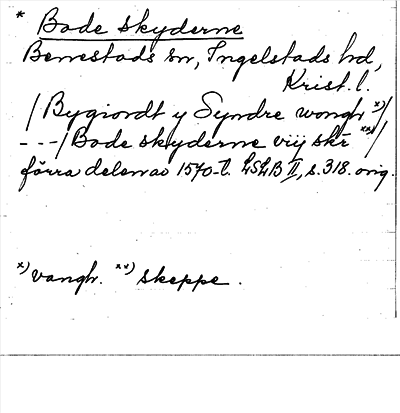 * Bode skyderne
Benestads sn, Ingelstads hd,
Krist. l.
/Bygiordt y Syndre wongh *)/
---/Bode skyderne vij skr **)/
förra delen av 1570-t. LSLB II, s. 318. orig.
*) vangh. **) skeppe.